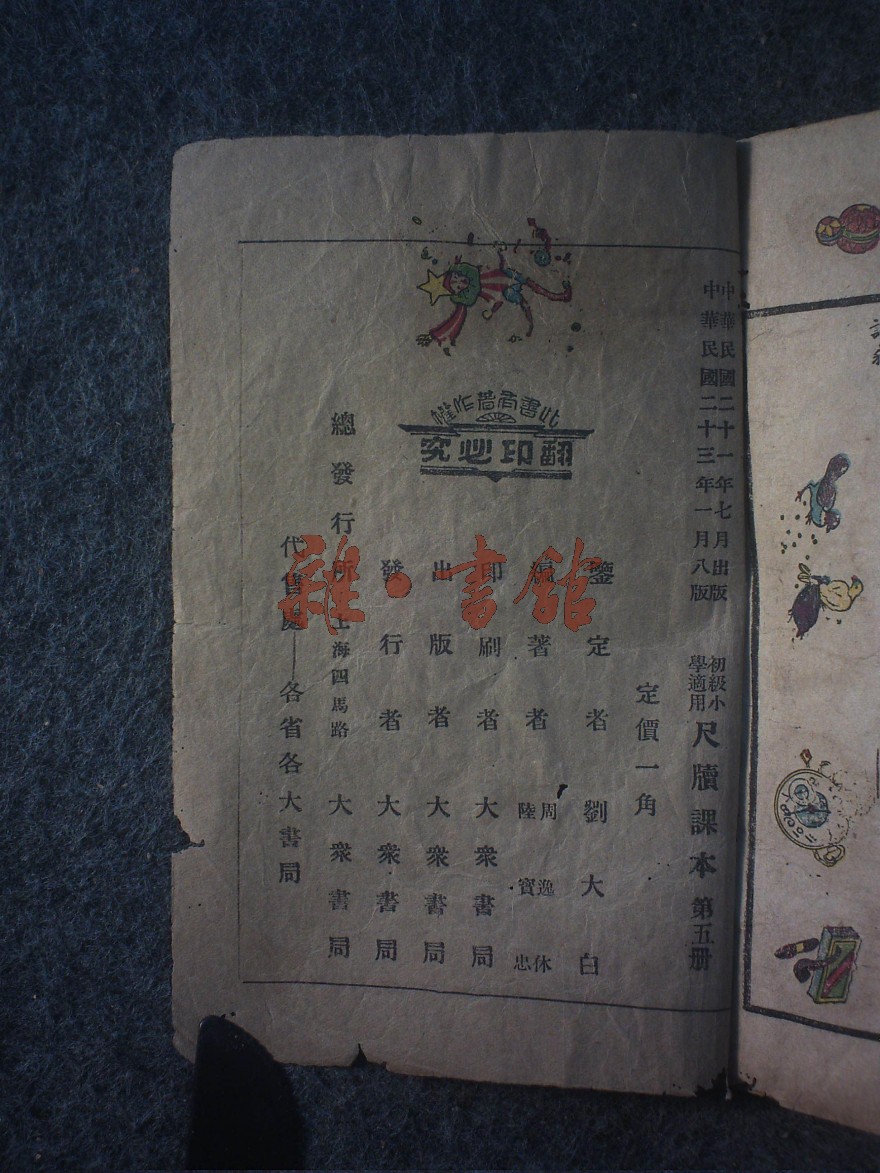 中華民國二十一年七月出版
中華民國二十三年一月八版
初級小學適用 尺牘課本 第五册
定價一角
鑒定者 劉大白
編著者 周逸休 陸寶忠
印刷者 大衆書局
出版者 大衆書局
發行者 大衆書局
總發行所 上海四馬路 大衆書局
代售處——各省各大書局
此書有著作權
翻印必究
雜·書館